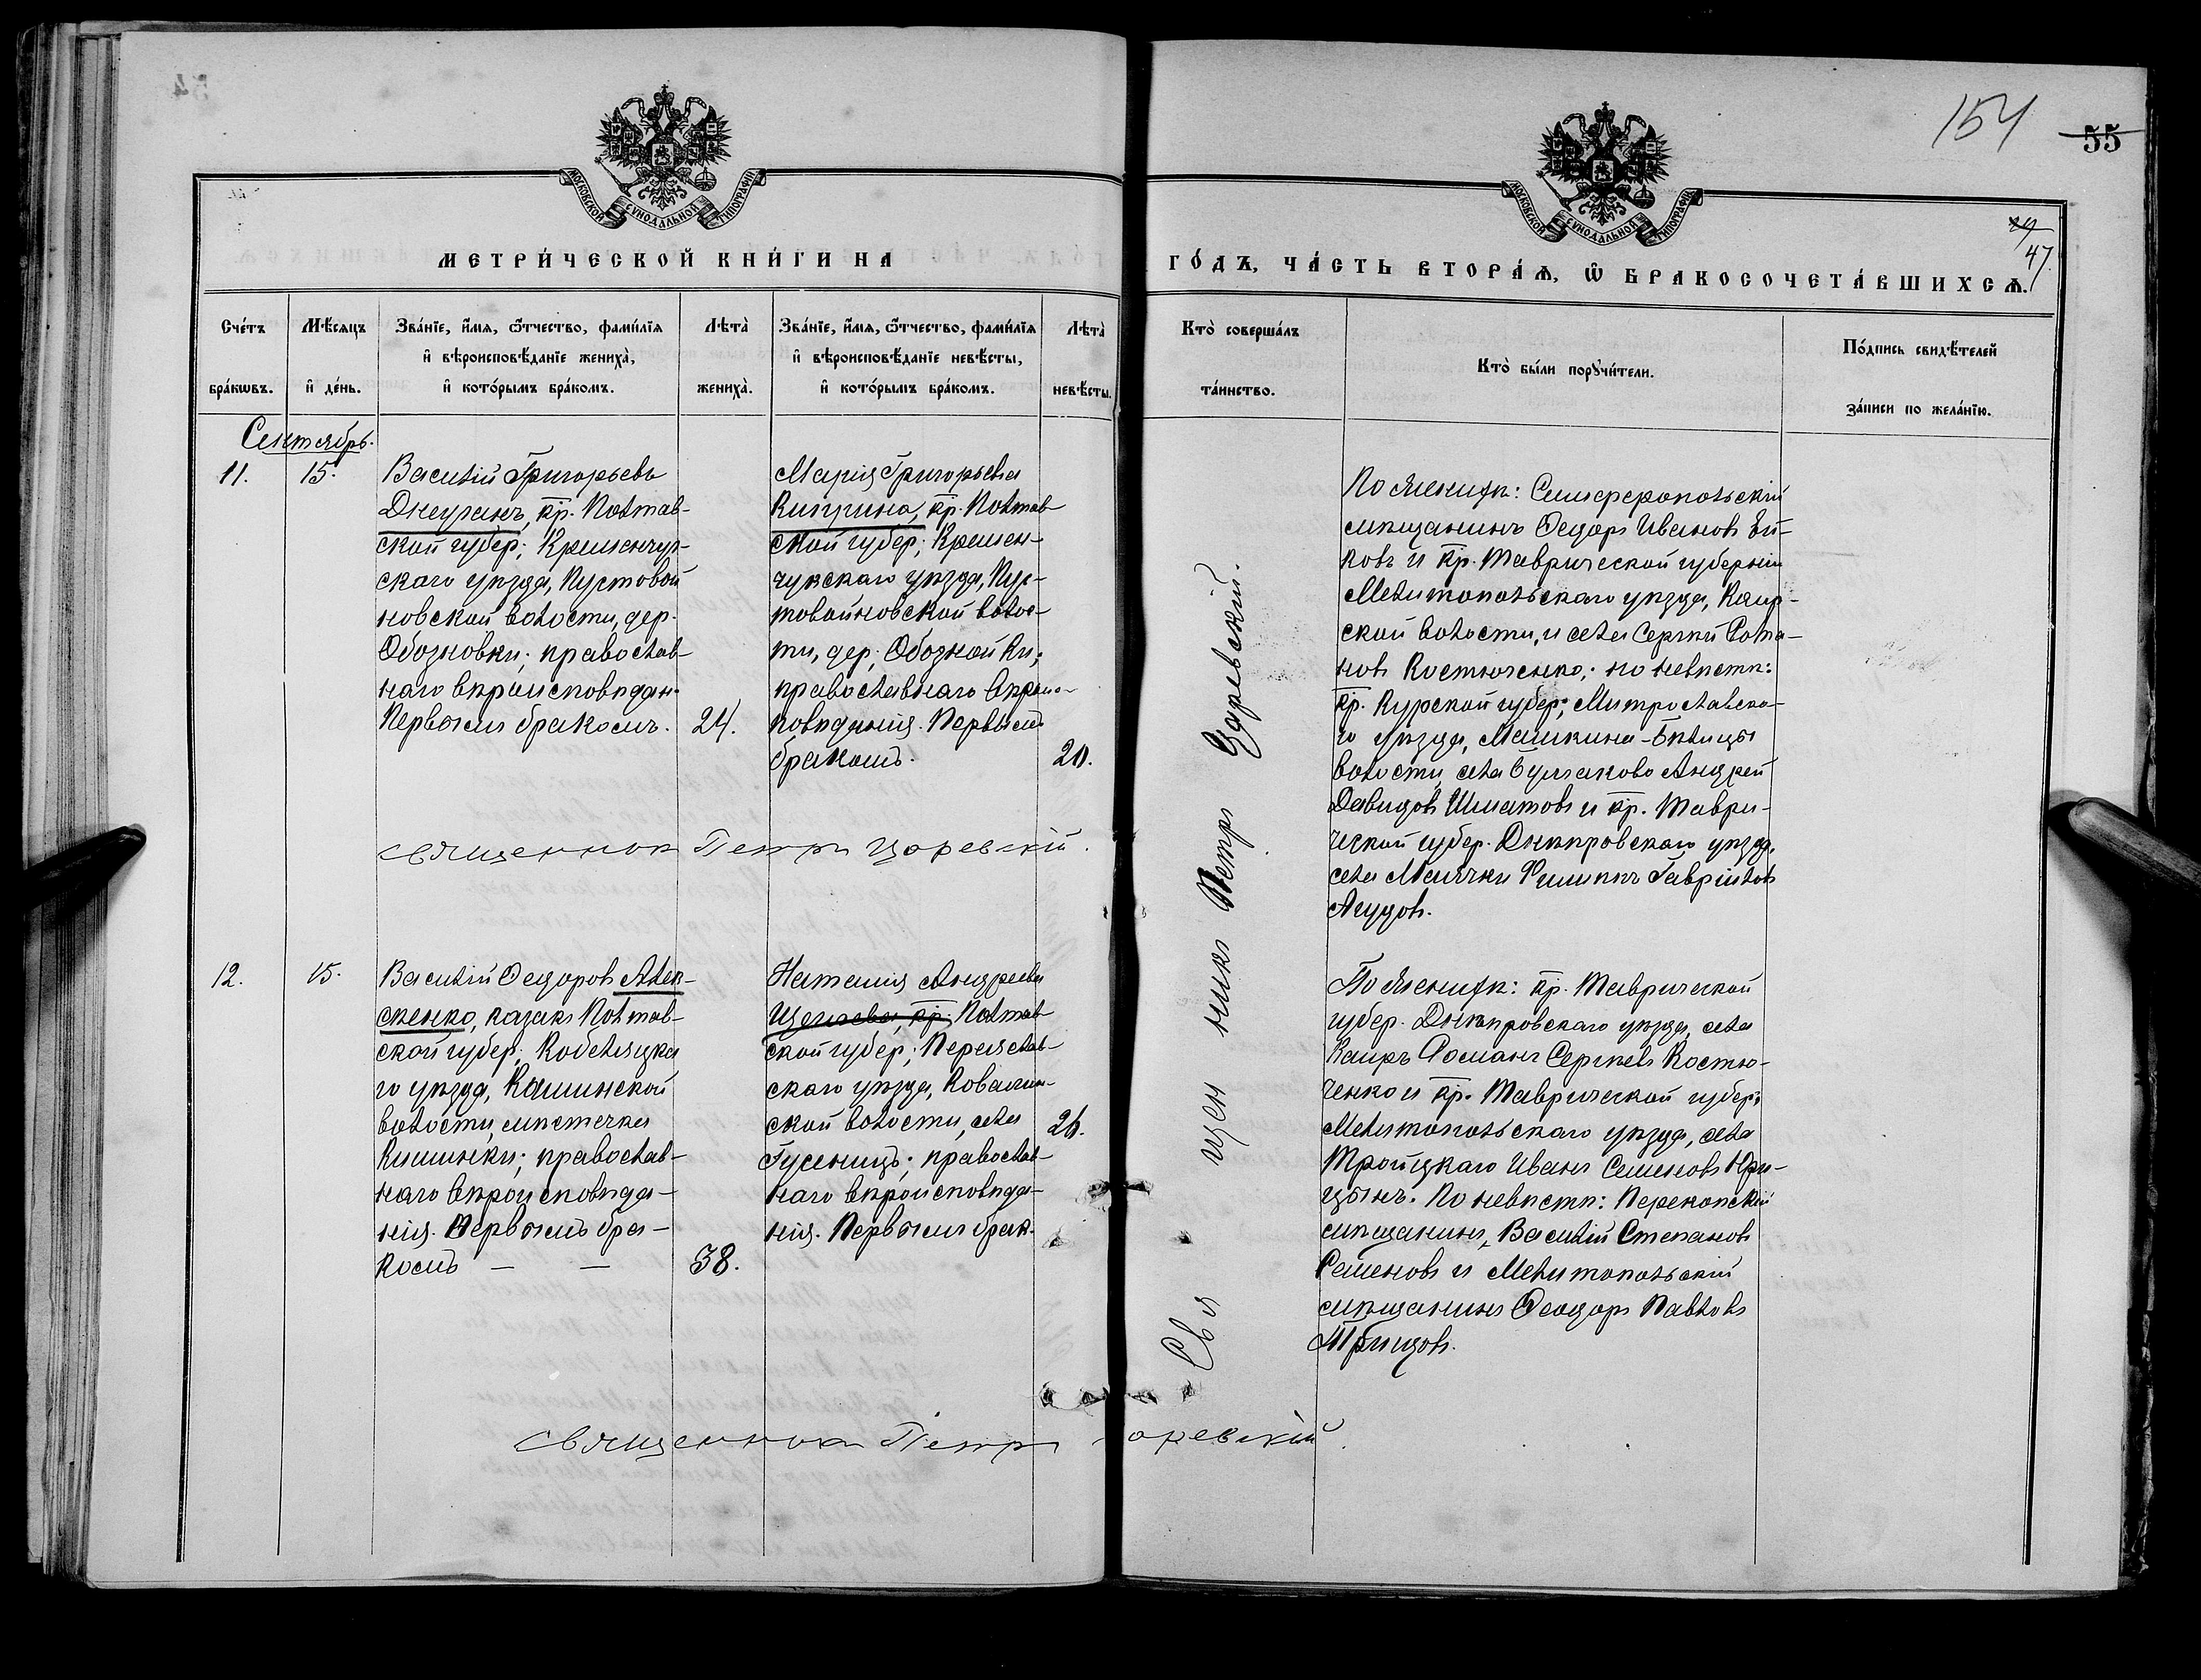 154
55
МОСКОВСКОЙ СУНОДАЛЬНОЙ ТИПОГРАФІИ
МОСКОВСКОЙ СУНОДАЛЬНОЙ ТИПОГРАФІИ
47.
МЕТРИ́ЧЕСКОЙ КНИ́ГИ НА
ГО́ДЪ, ЧА́СТЬ ВТОРА́Ѧ, Ѽ БРАКОСОЧЕТА́ВШИХСѦ.
Сче́тъ бра́кѡвъ.
Мѣ́сяцъ и҆ де́нь.
Зва́нїе, и҆́мѧ, ѻ҆́тчество, фами́лїѧ и҆ вѣроисповѣ́данїе жениха̀, и҆ кото́рымъ бра́комъ.
Лѣта̀ жениха̀.
Зва́нїе, и҆́мѧ, ѻ҆́тчество, фами́лїѧ и҆ вѣроисповѣ́данїе невѣ́сты, и҆ кото́рымъ бра́комъ.
Лѣта̀ невѣ́сты.
Кто̀ соверша́лъ та́инство.
Кто̀ бы́ли порꙋчи́тели.
По́дпись свидѣ́телей за́писи по жела́нїю.
Сентябрь.
11.
15.
Василій Григорьевъ
кр. Полтав-
ской губер; Кременчуг-
скаго уѣзда, Пустовой
новской волости, дер.
Обозновки; православ-
наго вѣроисповѣдан.
Первымъ бракомъ.
24.
Марія Григорьева
Киприна, кр. Полтав-
ской губер; Кремен-
чугскаго уѣзда, Пус-
товойновской волос-
ти, дер; Обозной Ки;
православнаго вѣроис-
повѣданія. Первымъ
бракомъ.
20.
По женихѣ: Симферопольскій
мѣщанинъ Ѳедоръ Ивановъ
и кр. Таврической губерніи
Мелитопольскаго уѣзда, Каир-
ской волости, и села Сергѣй Рома-
новъ Костюченко; по невѣстѣ:
кр. Курской губер;
го уѣзда,
волости, села Андрей
Давидовъ и кр. Таври-
ческой губер. Днѣпровскаго уѣзда,
села Маячки Филиппъ Гавріиловъ
священникъ Петръ Царевскій.
12.
15.
Василій Ѳедоровъ Алек-
сѣенко, казакъ Полтав-
ской губер; Кобеляцка
го уѣзда, Кишинской
волости, мѣстечка
Кишинки; православ-
наго вѣроисповѣда-
нія. Первымъ бра-
комъ — —
38.
Наталія Андреева
кр. Полтав-
ской губер; Переяслав-
скаго уѣзда, Ковалин-
ской волости, села
Гусеницъ; православ-
наго вѣроисповѣда-
нія. Первымъ брак.
26.
Священникъ Петръ Царевскій.
По женихѣ: кр. Таврической
губер. Днѣпровскаго уѣзда, села
Каиръ Романъ Сергѣевъ Костю-
ченко и кр. Таврической губер.
Мелитопольскаго уѣзда, села
Троицкаго Иванъ Семеновъ
По невѣстѣ: Перекопскій
мѣщанинъ, Василій Степановъ
Семеновъ и Мелитопольскій
мѣщанинъ Ѳеодоръ Павловъ
священникъ Петръ Царевскій.